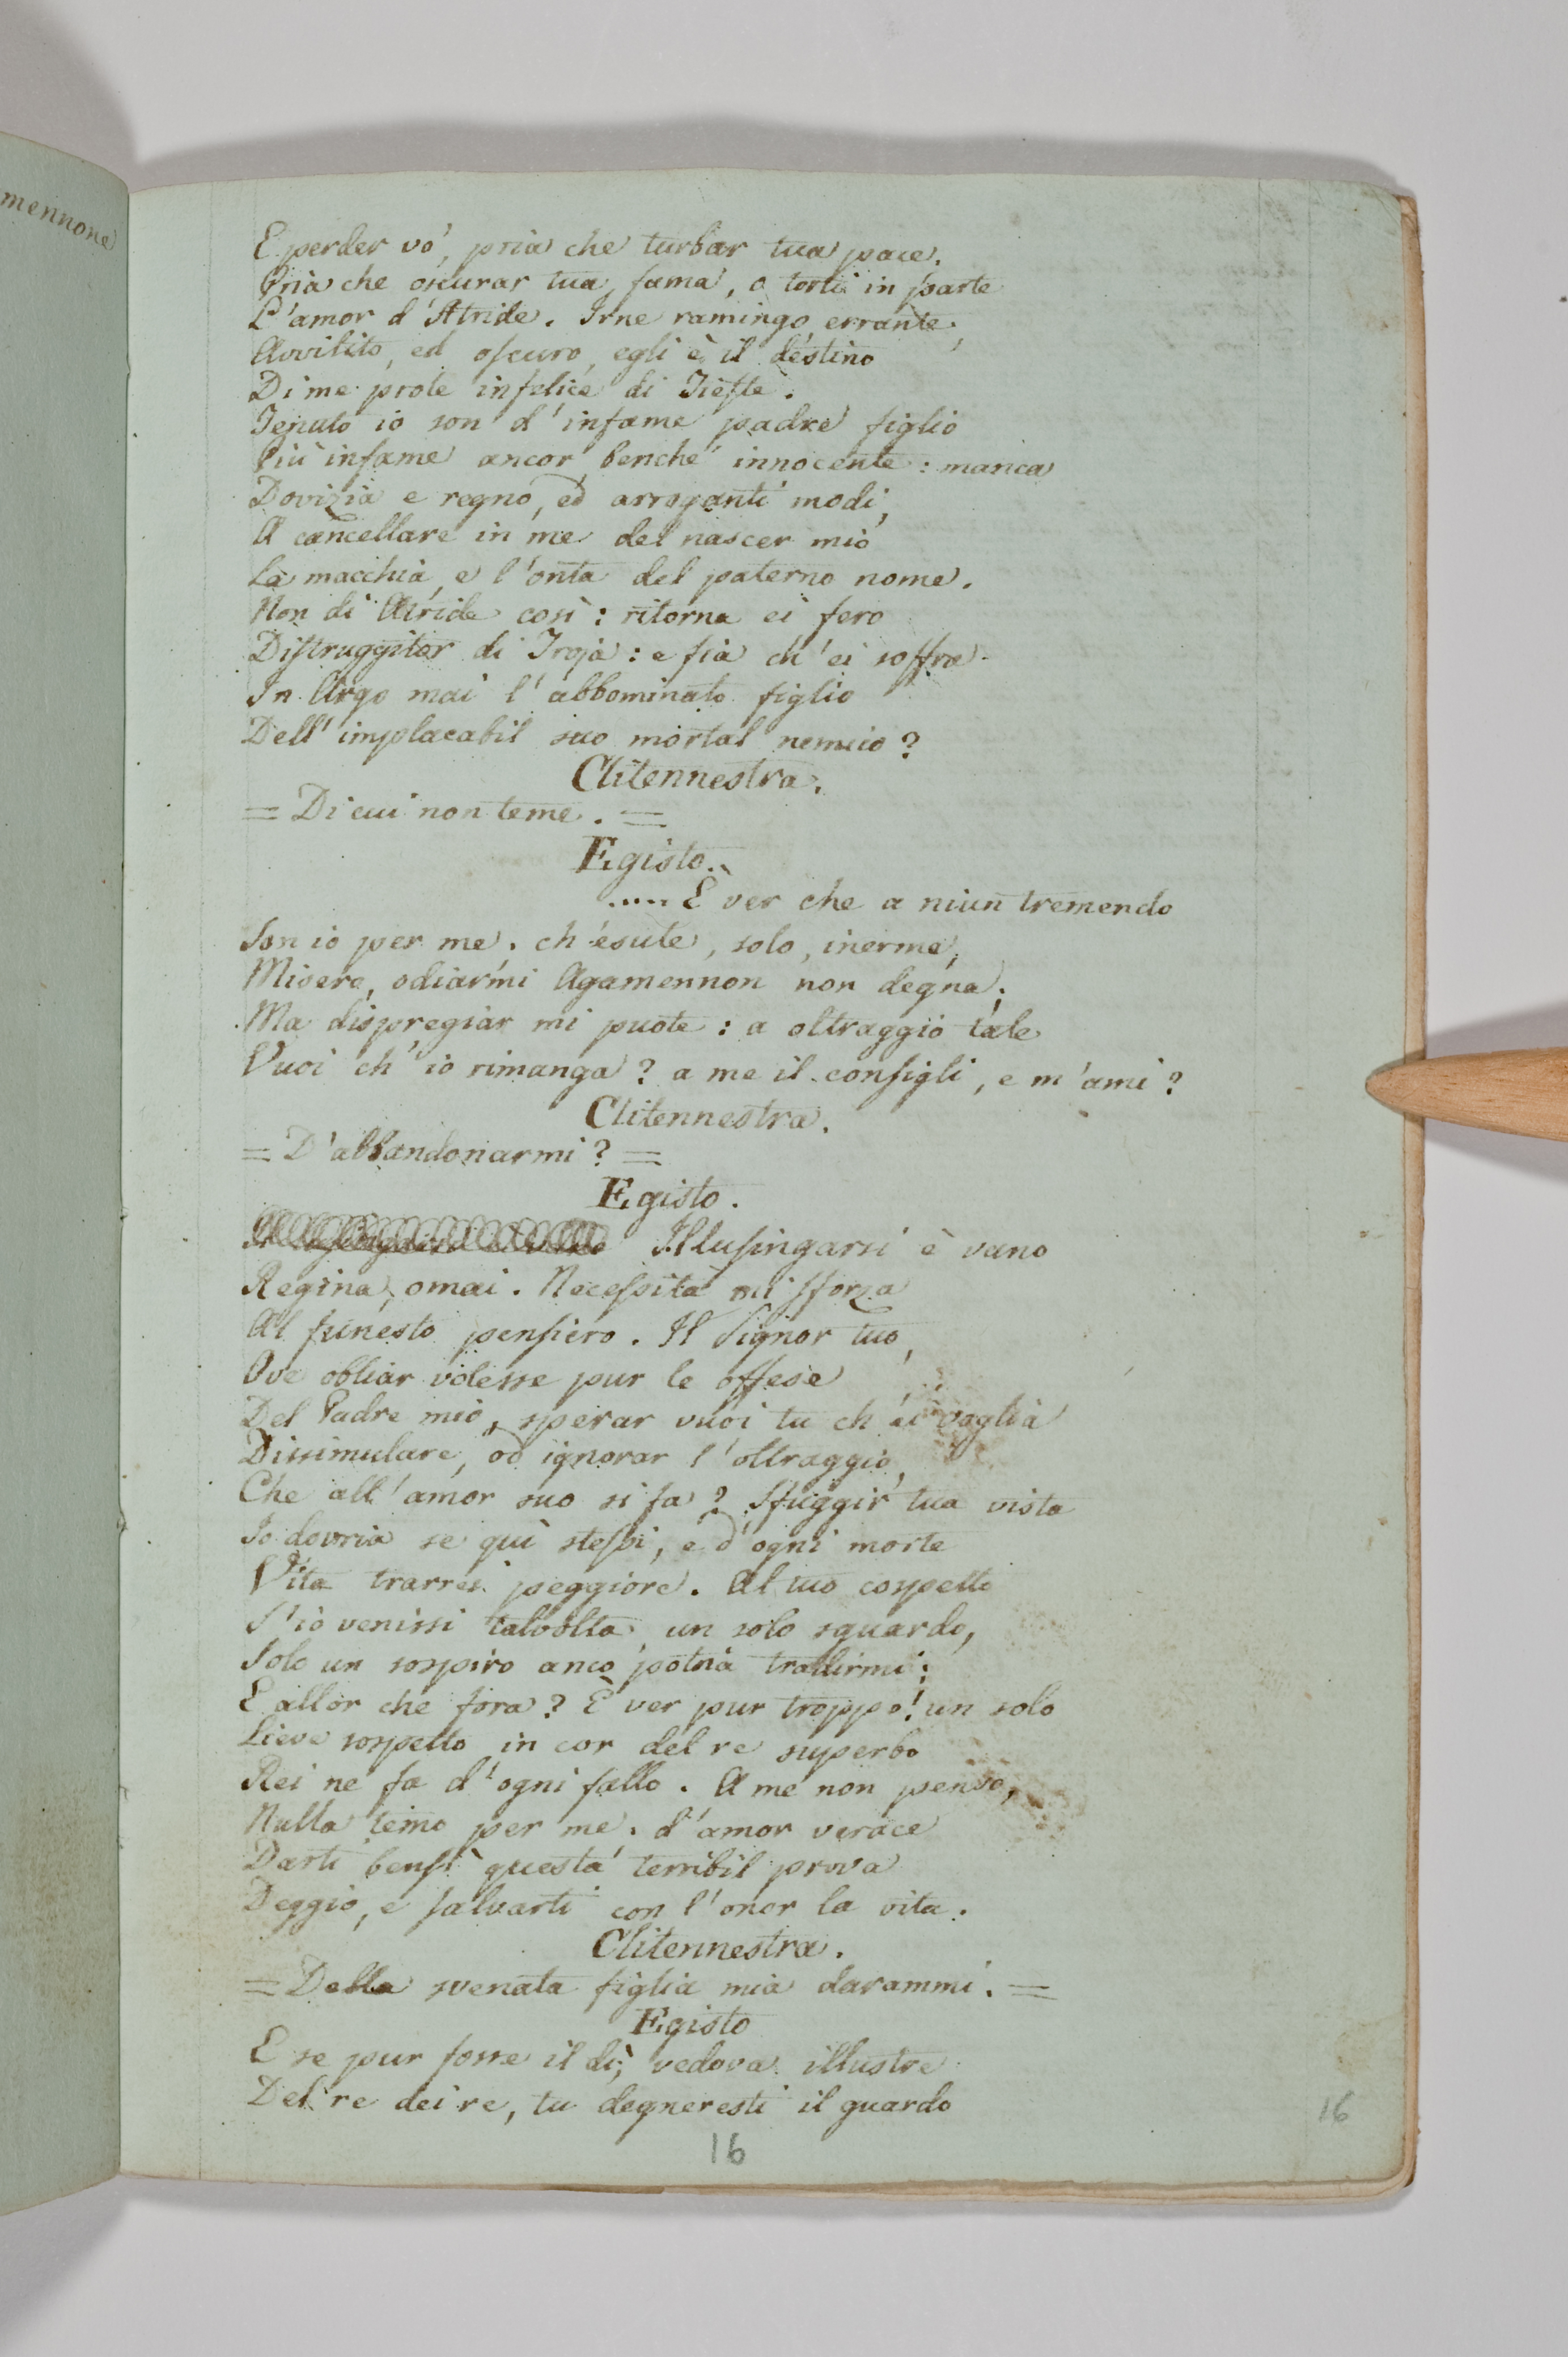 mennone
E perder vo', pria che turbar tua pace.
Pria che oscurar tua fama, o torti in parte
L'amor d'Atride. Irne ramingo, errante,
Avvilito, ed oscuro, egli è il destino
Di me prole infelice di Tieste.
Tenuto io son d'infame padre figlio
Più infame ancor, benchè innocente: manca
Dovizia e regno, ed arroganti modi,
A cancellare in me del nascer mio
La macchia, e l'onta del paterno nome.
Non di Atride così: ritorna ei fero
Distruggitor di Troja: e fia ch'ei soffra
In Argo mai l'abbominato figlio
Dell'implacabil suo mortal nemico?
Clitennestra.
= Di cui non teme. =
Egisto.
..... È ver che a niun tremendo
Son io per me. ch'esule, solo, inerme,
Misero, odiarmi Agamennon non degna;
Ma dispregiar mi puote: a oltraggio tale
Vuoi ch'io rimanga? a me il consigli, e m'ami?
Clitennestra.
= D'abbandonarmi? =
Egisto.
Il lusingarsi è vano
Regina, omai. Necessità mi sforza
Al funesto pensiero. Il Signor tuo,
Ove obliar volesse pur le offese
Del Padre mio, sperar vuoi tu ch'ei voglia
Dissimulare, od ignorar l'oltraggio,
Che all'amor suo si fa? Sfuggir tua vista
Io dovria se quì stessi, e d'ogni morte
Vita trarrei peggiore. Al tuo cospetto
S'io venissi talvolta, un solo sguardo,
Solo un sospiro anco potria tradirmi;
E allor che fora? È ver pur troppo! un solo
Lieve sospetto in cor del re superbo
Rei ne fa d'ogni fallo. A me non penso,
Nulla temo per me. d'amor verace
Darti bensì questa terribil prova
Deggio, e salvarti con l'onor la vita.
Clitennestra.
= Della svenata figlia mia darammi. =
Egisto
E se pur fosse il dì, vedova illustre
Del re dei re, tu degneresti il guardo
16
16